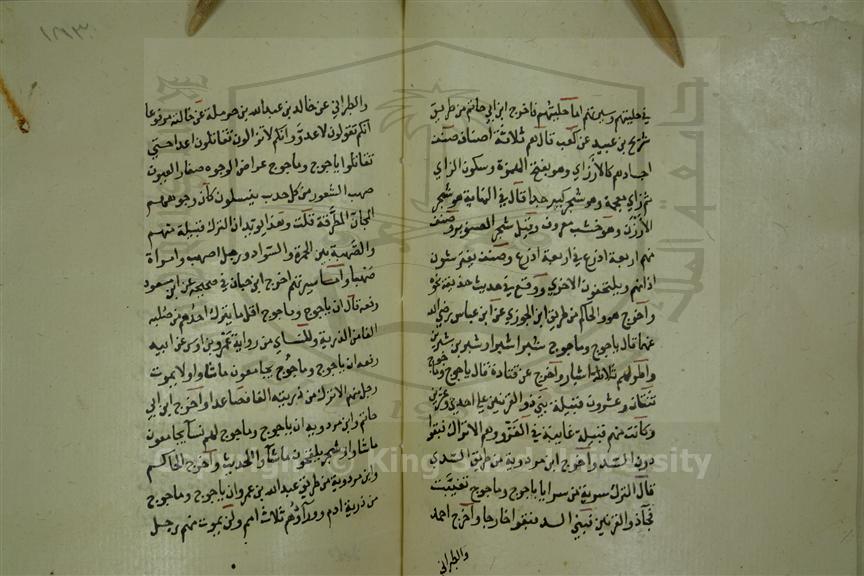 في حليتهم وسيرتهم اما حليتهم فاخرج ابن ابي حاتم من طريق
شريح بن عبيد عن كعب قال هم ثلاثة اصناف صنف
اجسادهم كالأرز اي وهو بفتح الهمزة وسكون الراي
ثم زاي معجمة وهو شجر كبير جدا قال في النهاية هو شجر
الأرزن وهو خشب معروف وقيل شجر الصنوبر وصنف
منهم اربعة اذرع في اربعة اذرع وصنف يفترشون
اذانهم ويلتحفون الاخري ووقع في حديث حذيفة نحوه
واخرج هو والحاكم من طريق ابن الجوزي عن ابن عباس رضي الله
عنهما قال ياجوج وماجوج شبرا شبرا وشبرين شبرين
واطولهم ثلاثة اشبار واخرج عن قتادة قال ياجوج وماجوج
ثنتان وعشرون قبيلة بني ذو القرنين علي احدي وعشرين
وكانت منهم قبيلة غايبة في الغزو وهم الاتراك فبقوا
دون السد واخرج ابن مردوية من طريق السدي
قال الترك سرية من سرايا ياجوج وماجوج تغيبت
فجآ ذو القرنين فبني السد فبقوا خارجا واخرج احمد
والطبراني
١٨٣
والطبراني عن خالد بن عبد الله بن حرملة عن خالته مرفوعا
انكم تقولون لا عدو وانكم لا تزالون تقاتلون اعدا حتي
تقاتلوا ياجوج وماجوج عراض الوجوه صغار العيون
صهب الشعور من كل حدب ينسلون كأن وجوههم
المجان المطرقة قلت وهذا يويد ان الترك قبيلة منهم
والصهبة بين الحمرة والسواد ورجل اصهب وامراة
صهبا واما سيرتهم اخرج ابن حبان في صحيحه عن ابن مسعود
رفعه قال ان ياجوج وماجوج اقل ما يترك احدهم من صلبه
الفا من الذرية وللنساي من رواية عمرو بن اوس عن ابيه
رفعه ان ياجوج وماجوج يجامعون ما شاوا ولا يموت
رجل منهم الا ترك من ذريته الفا فصاعدا واخرج ابن ابي
حاتم وابن مردويه ان ياجوج وماجوج لهم نسآ يجامعون
ما شاوا وشجر يلقحون ما شآوا الحديث واخرج الحاكم
وابن مردوية من طريق عبد الله بن عمرو ان ياجوج وماجوج
من ذرية ادم وورآؤهم ثلاث امم ولن يموت منهم رجل
Copyright © King Saud University